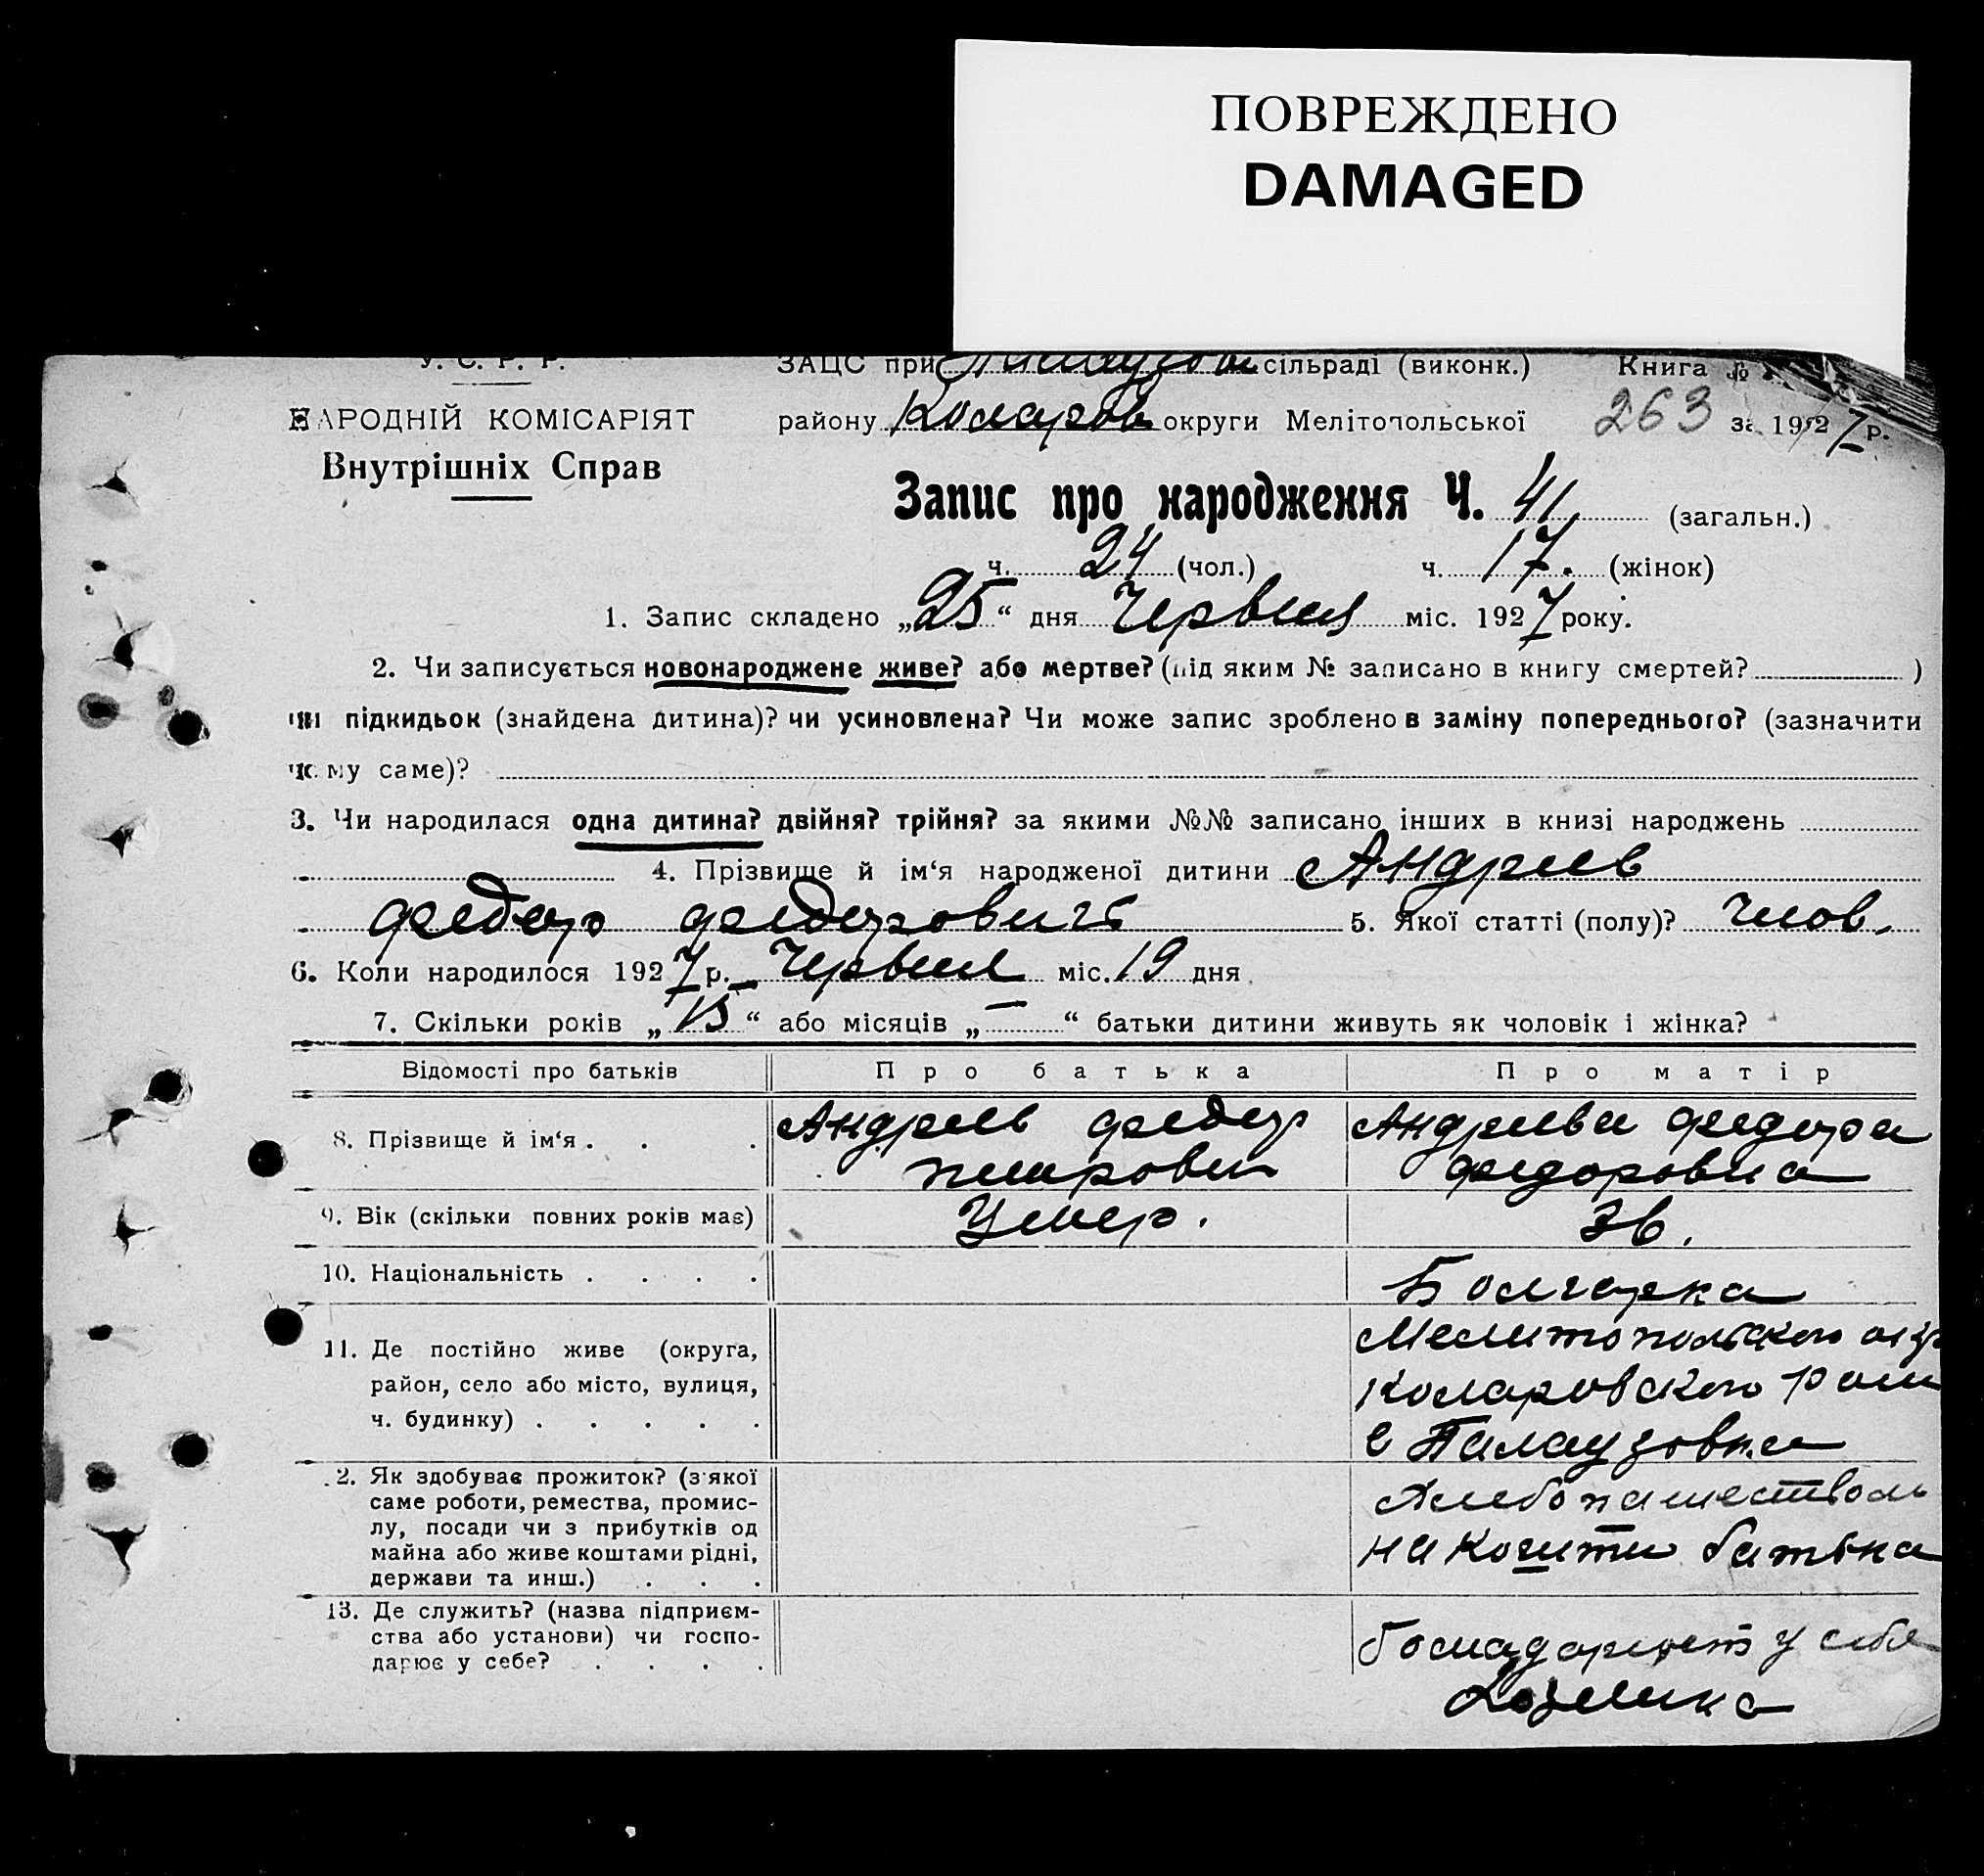 ПОВРЕЖДЕНО
DAMAGED
У. С. Р. Р.
ЗАЦС при Палаузов сільраді (виконк.) Книга №
НАРОДНІЙ КОМІСАРІЯТ
району Коларов округи Мелітопольської 263 за 1927 р.
Внутрішніх Справ
Запис про народження Ч. 41 (загальн.)
ч. 24 (чол.) ч. 17. (жінок)
1. Запис складено „25“ дня Червня міс. 1927 року.
2. Чи записується новонароджене живе? або мертве? (під яким № записано в книгу смертей? )
чи підкидьок (знайдена дитина)? чи усиновлена? Чи може запис зроблено в заміну попереднього? (зазначити
чому саме)?
3. Чи народилася одна дитина? двійня? трійня? за якими №№ записано інших в книзі народжень
4. Прізвище й ім‘я народженої дитини Андреев
федор федорович 5. Якої статті (полу)? Чолов.
6. Коли народилося 1927 р. Червня міс. 19 дня
7. Скільки років „15“ або місяців „—“ батьки дитини живуть як чоловік і жінка?
Відомості про батьків Про батька Про матір
8. Прізвище й ім‘я . . . Андреев федор Андреева федора
федоровна
9. Вік (скільки повних років має) Умер. 36.
10. Національність . . . . Болгарка
11. Де постійно живе (округа, Мелитопольского окр
район, село або місто, вулиця, Коларовского
ч. будинку) . . . . . с Палаузовка
12. Як здобуває прожиток? (з якої Хлебопашеством
саме роботи, ремества, промис-
лу, посади чи з прибутків од
майна або живе коштами рідні, на кошти батька
держави та инш.) . . .
13. Де служить? (назва підприєм-
ства або установи) чи госпо- у себе
дарює у себе? . . . .